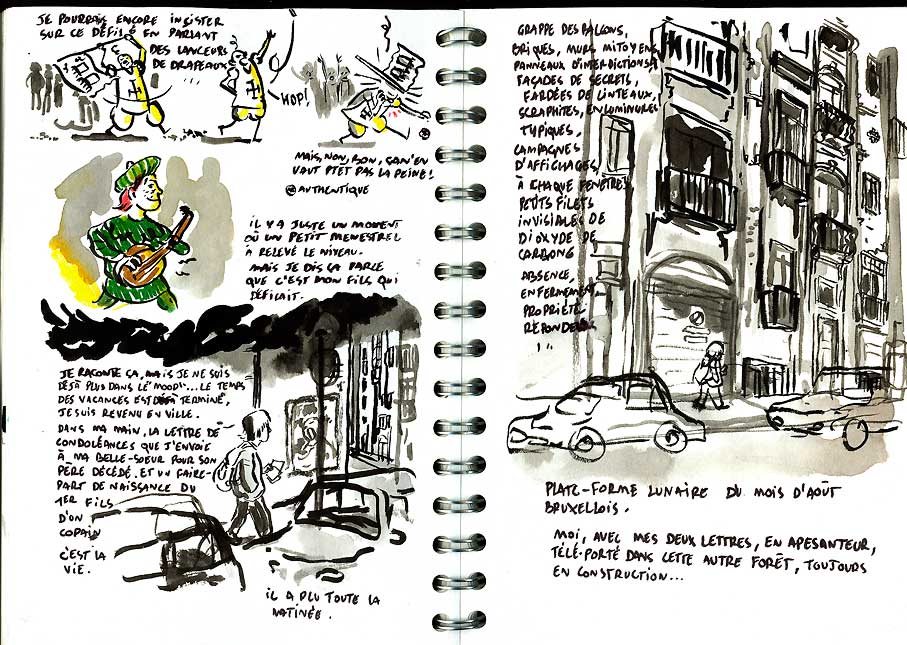 JE POURRAIS ENCORE INSISTER
SUR CE DÉFILÉ EN PARLANT
DES LANCEURS
DE DRAPEAUX
...
HOP!
MAIS, NON, BON, ÇA N'EN
VAUT PTET PAS LA PEINE!
@AUTHENTIQUE
IL Y A JUSTE UN MOMENT
OÙ UN PETIT MENESTREL
A RELEVÉ LE NIVEAU.
MAIS JE DIS ÇA PARCE
QUE C'EST MON FILS QUI
DÉFILAIT.
JE RACONTE ÇA, MAIS JE NE SUIS
DÉJÀ PLUS DANS LE "MOOD"... LE TEMPS
DES VACANCES EST DÉJÀ TERMINÉ,
JE SUIS REVENU EN VILLE.
DANS MA MAIN, LA LETTRE DE
CONDOLÉANCES QUE J'ENVOIE
À MA BELLE-SOEUR POUR SON
PÈRE DÉCÉDÉ, ET UN FAIRE-
PART DE NAISSANCE DU
1ER FILS
D'UN
COPAIN
C'EST LA
VIE.
IL A PLU TOUTE LA
MATINÉE.
GRAPPE DES BALCONS,
BRIQUES, MURS MITOYENS
PANNEAUX D'INTERDICTIONS,
FAÇADES DE SECRETS,
FARDÉES DE LINTEAUX,
SGRAPHITES, ENLUMINURES
TYPIQUES.
CAMPAGNES
D'AFFICHAGES,
À CHAQUE FENÊTRES
PETITS FILETS
INVISIBLES DE
DIOXYDE DE
CARBONE
ABSENCE,
ENFERMEMENT,
PROPRIÉTÉ
...
PLATE-FORME LUNAIRE DU MOIS D'AOÛT
BRUXELLOIS.
MOI, AVEC MES DEUX LETTRES, EN APESANTEUR,
TÉLÉ-PORTÉ DANS CETTE AUTRE FORÊT, TOUJOURS
EN CONSTRUCTION...